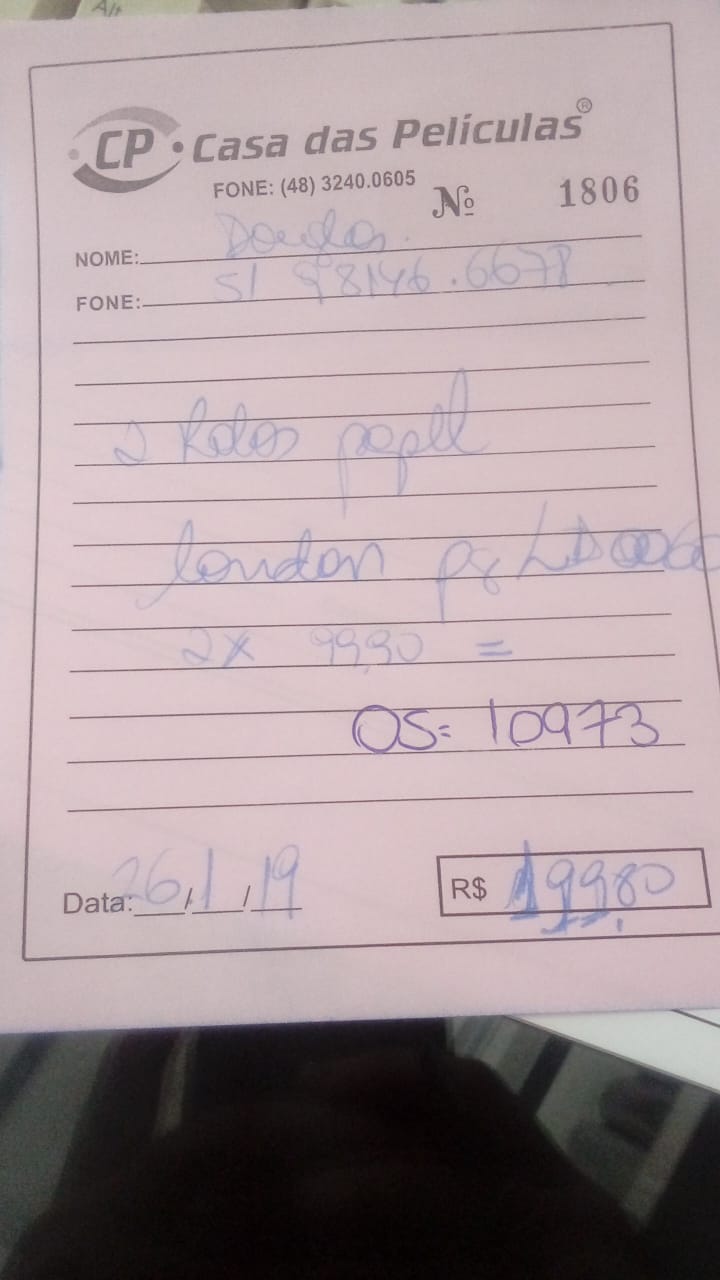 CP • Casa das Películas®
FONE: (48) 3240.0605 Nº 1806
NOME: Douglas.
FONE: 51 98146.6678
2 Rolos papel
london pg LD
2x 99,90 =
OS= 10973
Data: 26/1/19 R$ 199,80